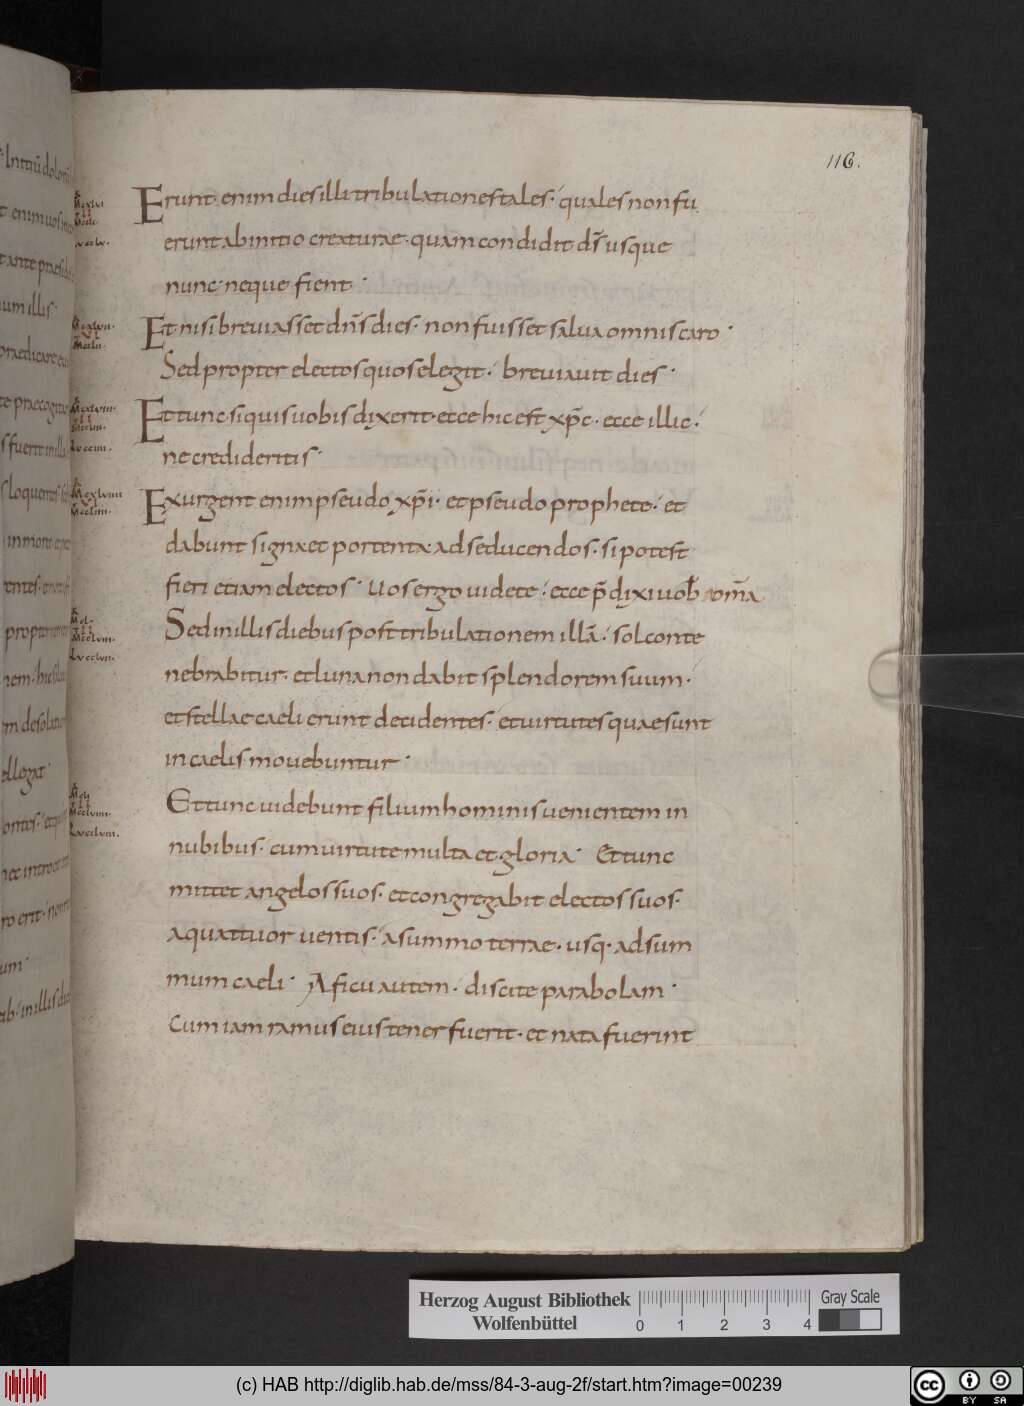 116.
Erunt enim dies illi tribulationes tales· quales non fu
erunt ab initio creaturae· quam condidit ds̄ usque
nunc· neque fient·
Et nisi breviasset dn̄s dies· non fuisset salva omnis caro·
Sed propter electos quos elegit· breviavit dies·
Et tunc· si quis vobis dixerit· ecce hic est xp̄c· ecce illic·
ne credideritis·
Exurgent enim pseudo xp̄i· et pseudo prophete· et
dabunt signa et portenta· ad seducendos· si potest
fieri etiam electos· Vos ergo videte· ecce p̄dixi vob̄ om̄a
Sed in illis diebus post tribulationem illā· sol conte
nebrabitur· et luna non dabit splendorem suum·
et stellae caeli erunt decidentes· et virtutes quae sunt
in caelis movebuntur·
Et tunc videbunt filium hominis venientem in
nubibus· cum virtute multa et gloria· Et tunc
mittet angelos suos· et congregabit electos suos·
a quattuor ventis· a summo terrae· usq· ad sum
mum caeli· A ficu autem· discite parabolam·
Cum iam ramus eius tener fuerit· et nata fuerint
Herzog August Bibliothek
Wolfenbüttel
0 1 2 3 4
Gray Scale
(c) HAB http://diglib.hab.de/mss/84-3-aug-2f/start.htm?image=00239
cc BY SA